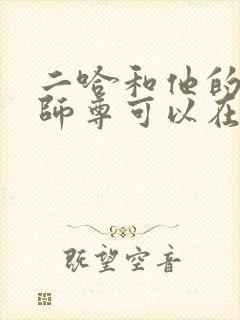 二哈和他的
師尊可以在
既望空音